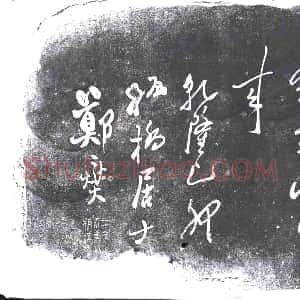 年
乾隆乙卯
板橋居士
鄭燮
shufazidian.com